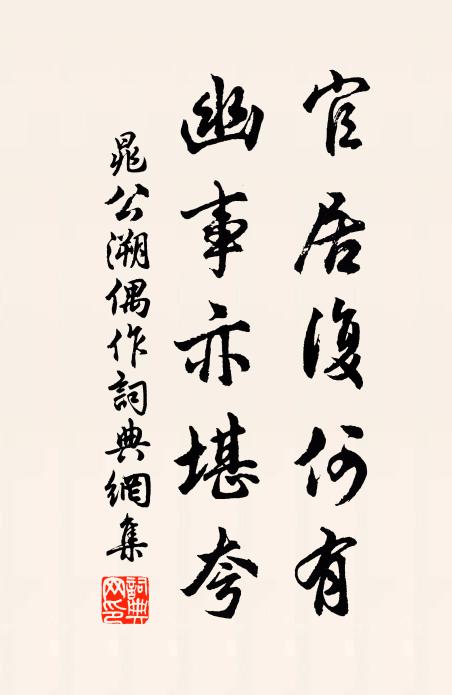 官居復何有
幽事亦堪夸
晁公溯偶作詞典網集
詞典網印